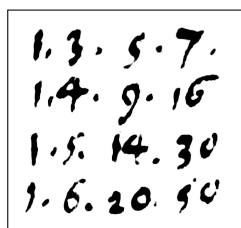 1. 3. 5. 7.
1. 4. 9. 16
1. 5. 14. 30
1. 6. 20. 50